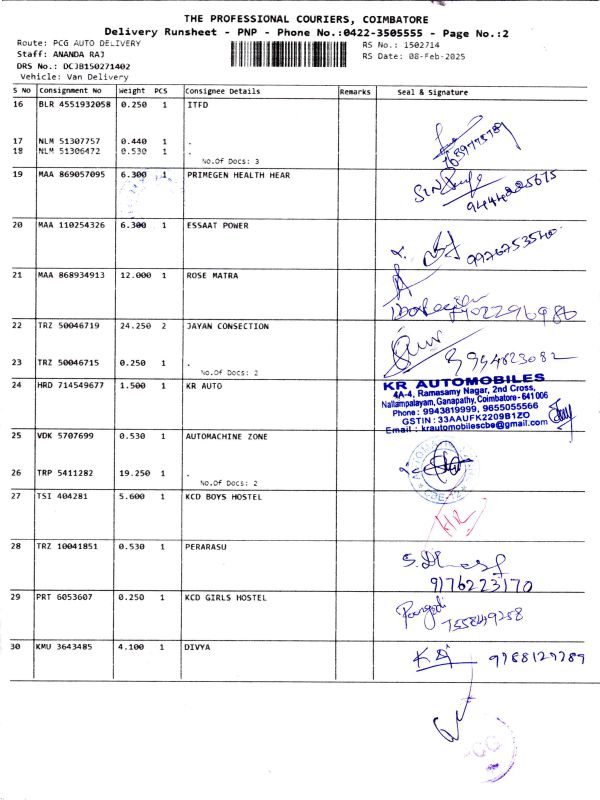 THE PROFESSIONAL COURIERS, COIMBATORE
Delivery Runsheet - PNP - Phone No.:0422-3505555 - Page No.:2
Route: PCG AUTO DELIVERY
RS No.: 1502714
Staff: ANANDA RAJ
RS Date: 08-Feb-2025
DRS No.: DCJB150271402
Vehicle: Van Delivery
S No Consignment No Weight PCS Consignee Details Remarks Seal & Signature
16 BLR 4551932058 0.250 1 ITFD
17 NLM 51307757 0.440 1 .
18 NLM 51306472 0.530 1 .
No.Of Docs: 3
19 MAA 869057095 6.300 1 PRIMEGEN HEALTH HEAR
20 MAA 110254326 6.300 1 ESSAAT POWER
9976753540
21 MAA 868934913 12.000 1 ROSE MATRA
22 TRZ 50046719 24.250 2 JAYAN CONSECTION
23 TRZ 50046715 0.250 1 .
No.Of Docs: 2
24 HRD 714549677 1.500 1 KR AUTO
KR AUTOMOBILES
4A-4, Ramasamy Nagar, 2nd Cross,
Nallampalayam, Ganapathy, Coimbatore - 641 006
Phone : 9943819999, 9655055566
GSTIN : 33AAUFK2209B1ZO
Email : krautomobilescbe@gmail.com
25 VDK 5707699 0.530 1 AUTOMACHINE ZONE
26 TRP 5411282 19.250 1 .
No.Of Docs: 2
27 TSI 404281 5.600 1 KCD BOYS HOSTEL
HR
28 TRZ 10041851 0.530 1 PERARASU
9176223170
29 PRT 6053607 0.250 1 KCD GIRLS HOSTEL
30 KMU 3643485 4.100 1 DIVYA